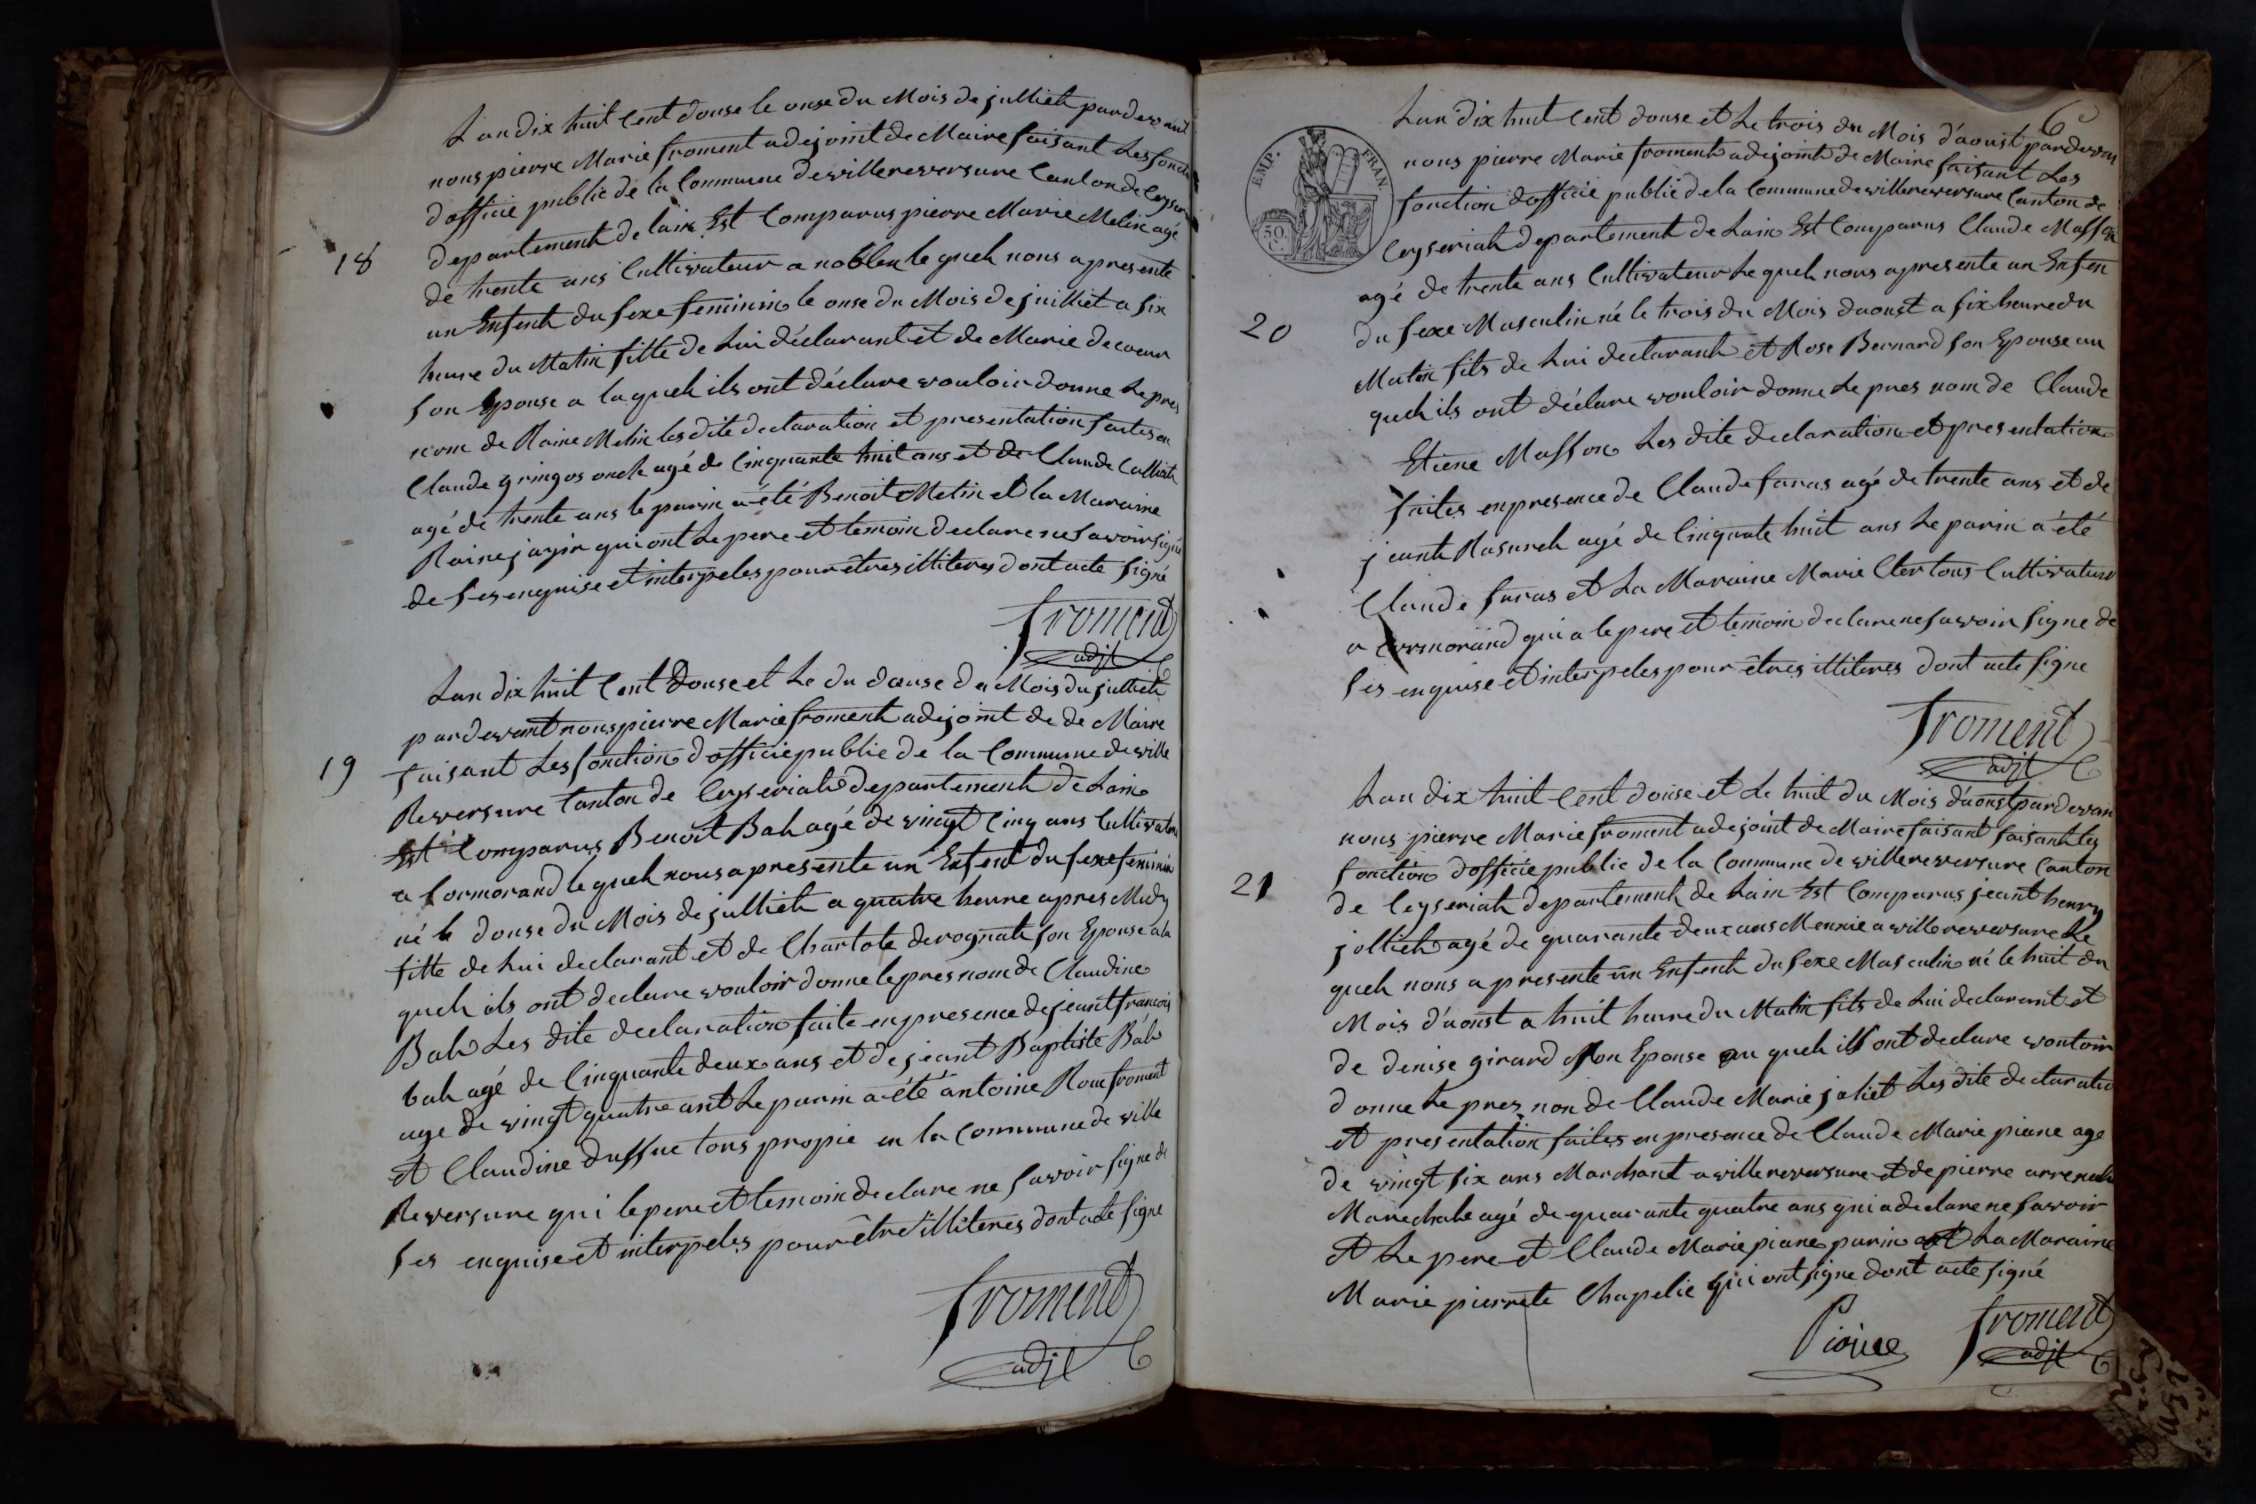 Lan dix huit Cent douse le onse du Mois de julliet pardevant
nous pierre Marie froment adejoint de Maire faisant Les foncti
d'officie public de la Commune de villereversure Canton de Ceyser
18
departement de lain Est Comparus pierre Marie Melin agé
de trente ans Cultivateur a noblen le queh nous a presente
un Enfent du sexe feminin le onse du Mois de juilliet a six
heure du Matin fille de Lui déclarant et de Marie decoeur
son Epouse a la queh ils ont déclare vouloir donne Le pres
nom de Raine Melin les dite declaration et presentation faites en
Claude gringos onch agé de Cinquante huit ans et de Claude Calliat
agé de trente ans le parin a été Benoit Melin et la Maraine
Raine jayin qui ont Le pere et temoin declare ne savoir signé
de ses enquise et interpeles pour êtres illiteres dont acte signé
froment
adjt
Lan dix huit Cent Douse et Le du douse du Mois du julliet
pardevant nous pierre Marie froment adejoint de de Maire
19
faisant Les fonction d'officie public de la Commune de ville
Reversure Canton de Ceyseriah departement de Lain
Est Comparus Benoit Bah agé de vingt Cinq ans Cultivateu
a Cormorand le queh nous a presente un Enfent du sexe feminin
né le douse du Mois de julliet a quatre heure apres Midy
fille de Lui declarant et de Charlote derognat son Epouse a la
queh ils ont declare vouloir donne le pres nom de Claudine
Bah Les dite declaration faite en presence de jeant francois
bah agé de Cinquante deux ans et de jeant Baptiste Bah
age de vingt quatre ant Le parin a été antoine Rome froment
et Claudine dussue tous propie en la Commune de ville
Reversure qui le pere et temoin declare ne savoir signe de
ses enquise et interpeles pour être illiteres dont acte signe
froment
adjt
6
Lan dix huit Cent douse et Le trois du Mois d'aoust pardevan
nous pierre Marie froment adejoint de Maire faisant Les
EMP. FRAN.
50 C.
fonction d'officie public de la Commune de villereversure Canton de
Ceyseriah departement de Lain Est Comparus Claude Masson
agé de trente ans Cultivateur Le queh nous a presente un Enfen
20
du sexe Masculin né le trois du Mois daoust a six heure du
Matin fils de Lui declarant et Rose Bernard son Epouse au
queh ils ont déclare vouloir donne Le pres nom de Claude
Etiene Masson Les dite declaration et presentation
faites en presence de Claude faras agé de trente ans et de
jeant Rasurel agé de Cinquate huit ans Le parin a été
Claude faras et La Maraine Marie Clertous Cultivateur
a Cormorand qui a le pere et temoin declare ne savoir signe de
ses enquise et interpeles pour êtres illiteres dont acte signe
froment
adjt
Lan dix huit Cent douse et Le huit du Mois d'aoust pardevan
nous pierre Marie froment adejoint de Maire faisant faisant les
fonction d'officie public de la Commune de villereversure Canton
21
de Ceyseriah departement de Lain Est Comparus jeant henry
jolliet agé de quarante deux ans Mennie a villereversure Le
queh nous a presente un Enfent du sexe Masculin né le huit du
Mois d'aoust a huit heure du Matin fils de Lui declarant et
de denise girard son Epouse au queh ils ont declare vouloir
donne Le pres non de Claude Marie joliet Les dite declaratio
et presentation faites en presence de Claude Marie piane age
de vingt six ans Marchant a villereversure et de pierre
Marechale agé de quarante quatre ans qui a declare ne savoir
et Le pere et Claude Marie piane parin et La Maraine
Marie pierrete Chapelie qui ont signe dont acte signé
froment
adjt